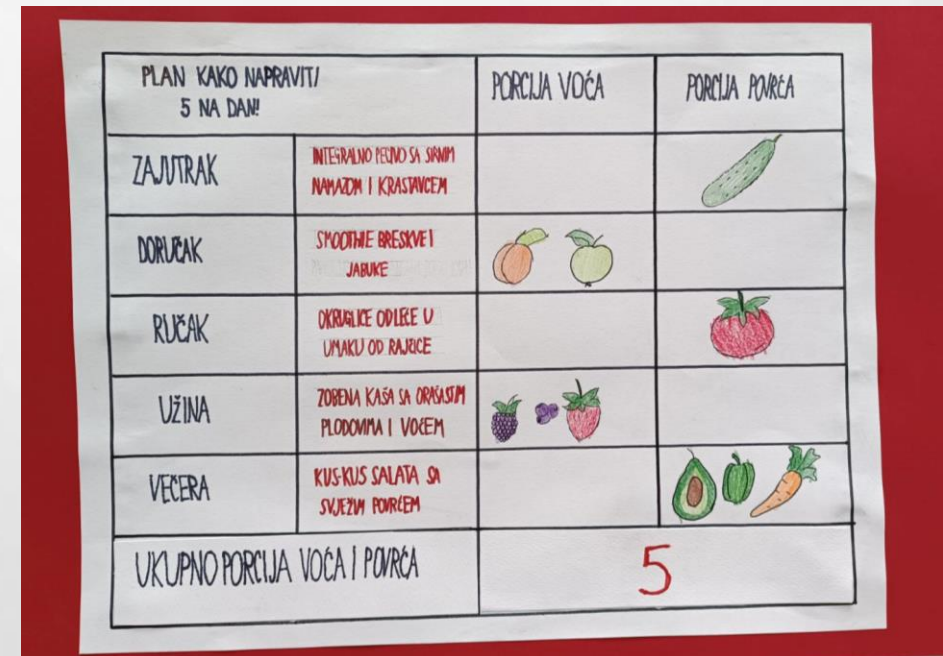 PLAN KAKO NAPRAVITI
5 NA DAN!
PORCIJA VOĆA
PORCIJA POVRĆA
ZAJUTRAK
INTEGRALNO PECIVO SA SIRNIM
NAMAZOM I KRASTAVCEM
DORUČAK
SMOOTHIE BRESKVE I
JABUKE
RUČAK
OKRUGLICE OD LEĆE U
UMAKU OD RAJČICE
UŽINA
ZOBENA KAŠA SA ORAŠASTIM
PLODOVIMA I VOĆEM
VEČERA
KUS-KUS SALATA SA
SVJEŽIM POVRĆEM
UKUPNO PORCIJA VOĆA I POVRĆA
5